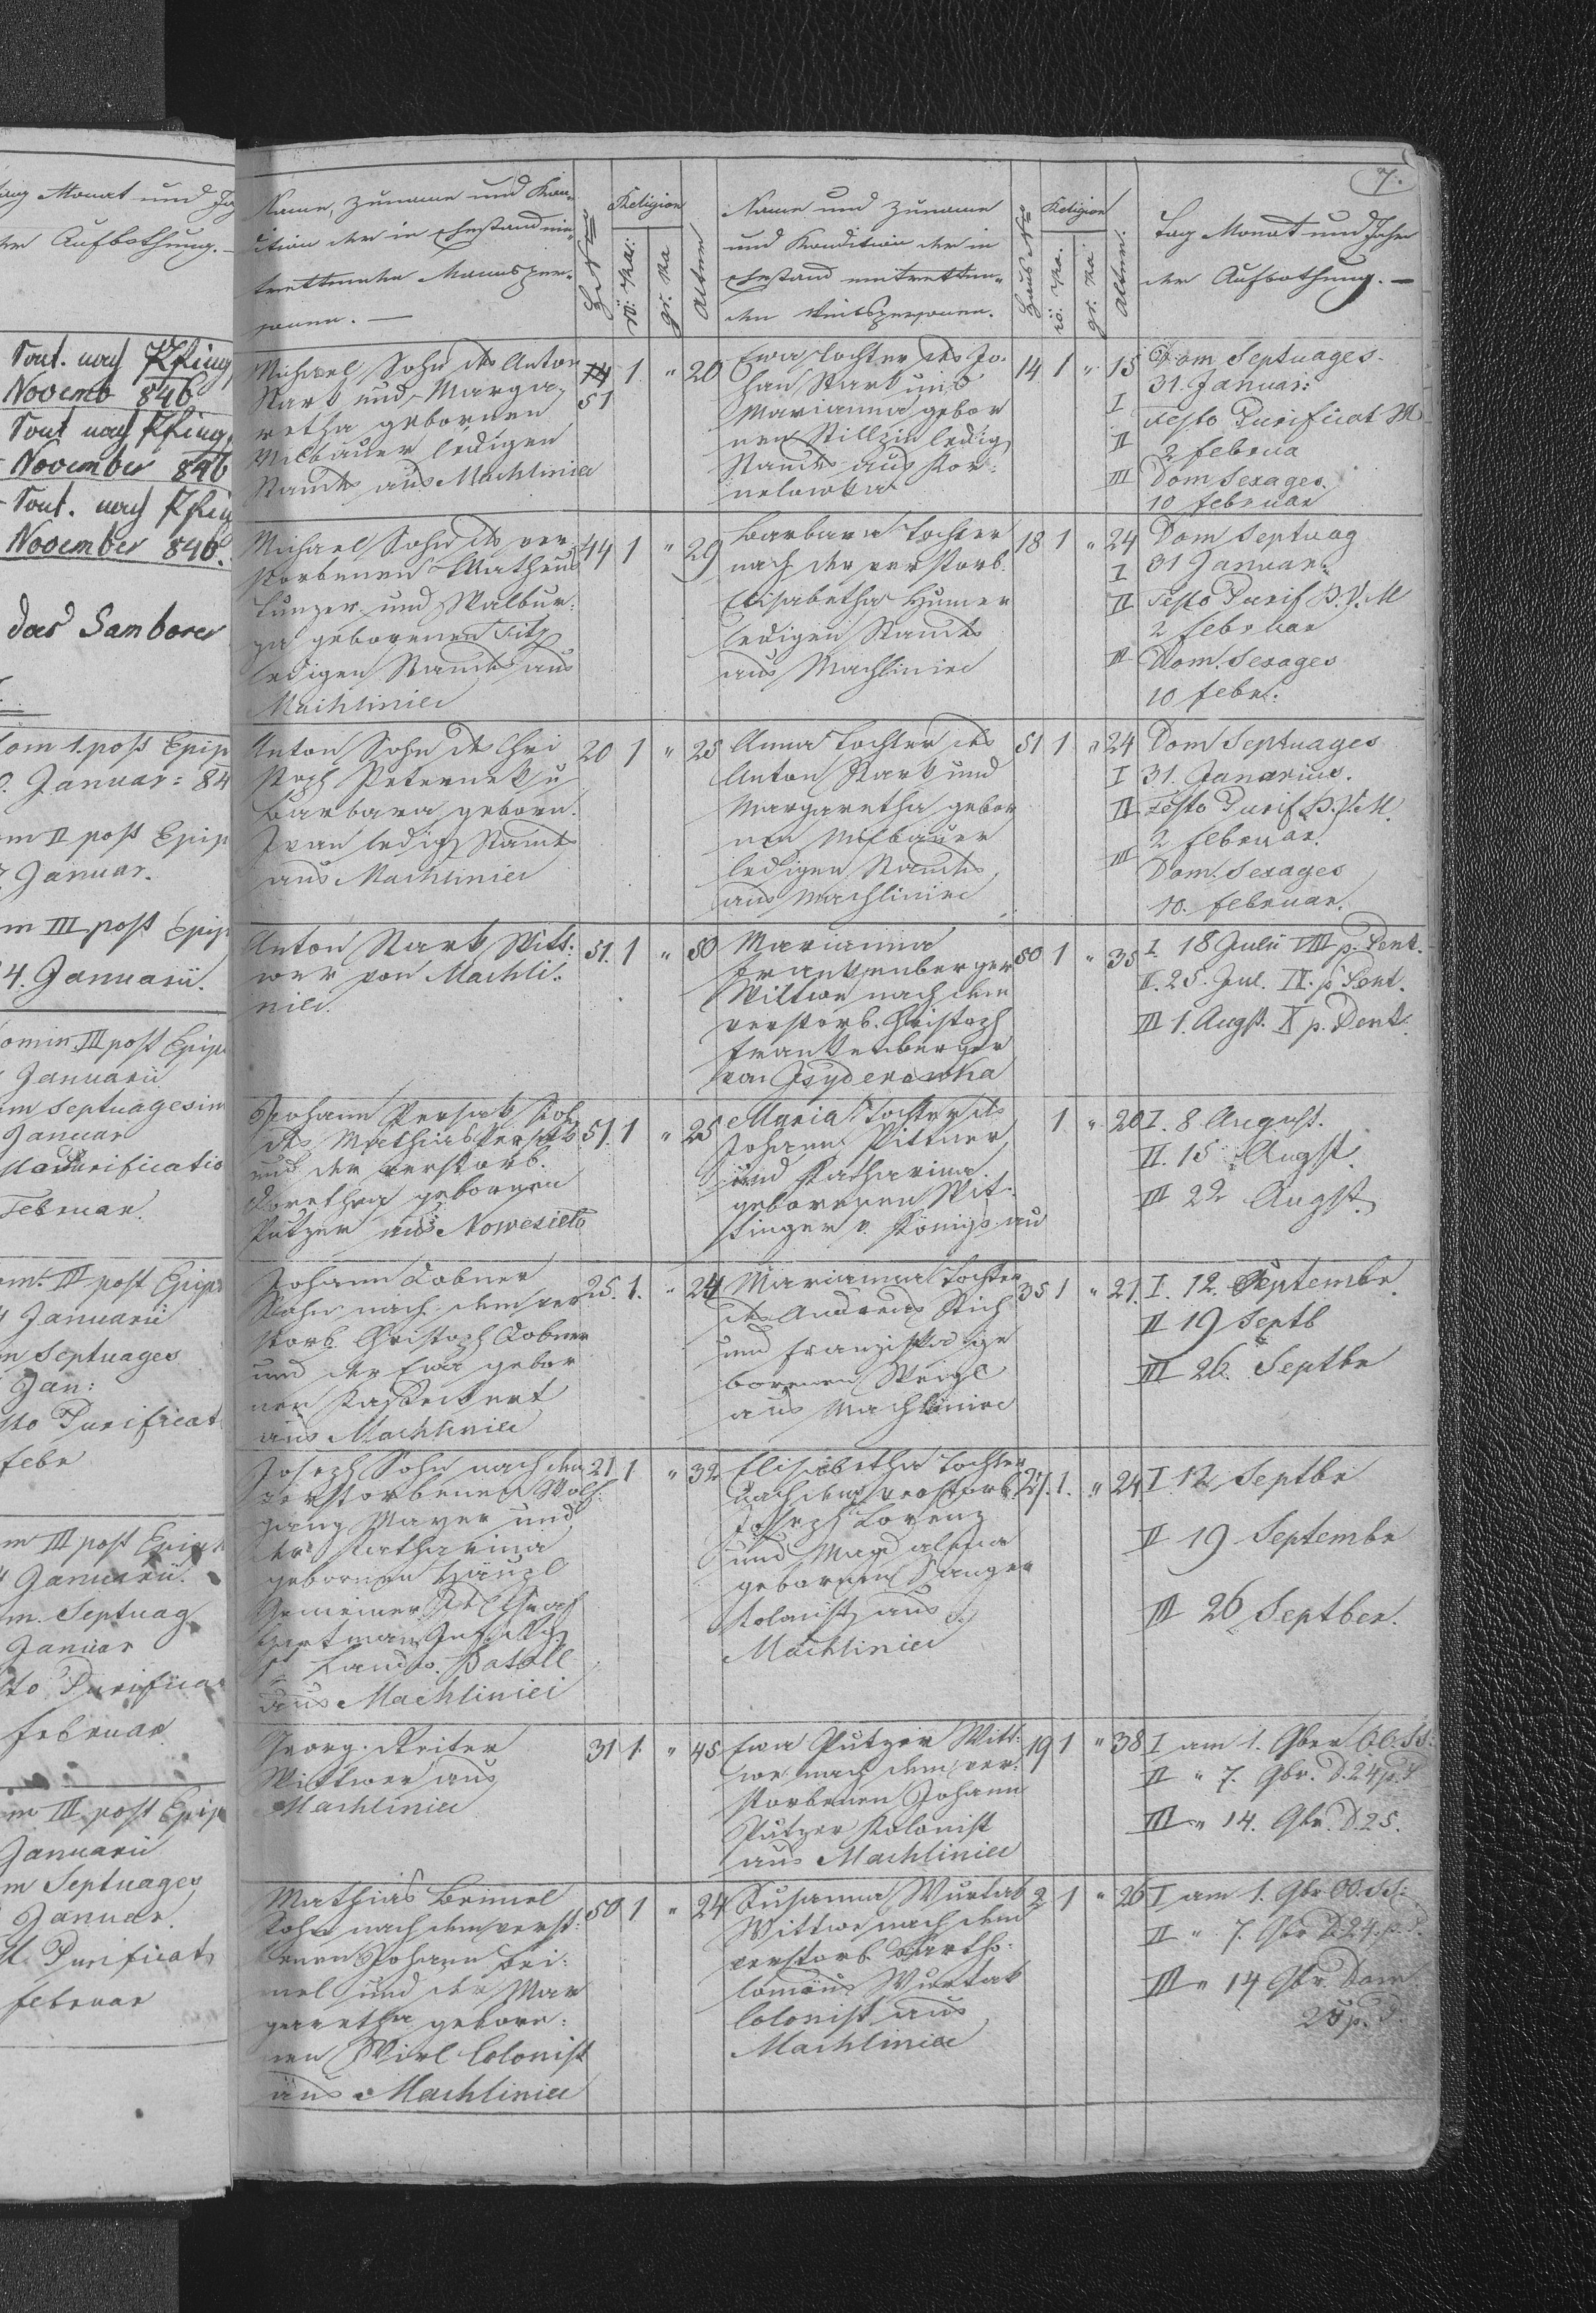 Monat und
der Aufbothung.
Sont. nach Pfing
Novemb 846
Sont. nach Pfing
November 846
Sont. nach Pfing
November 846.
das Samborer
Dom 1. post Epip
Januar: 84
m II post Epip
Januar.
m III post Epip
4. Januarii.
Domin. III post Epip
Januarii
m Septuagesim
Januar
Purificatio
Februar.
m. III post Epip
Januarii
m Septuages
Jan:
sto Purificat
Febr
m III post Epiph
Januarii.
m. Septuag
Januar
sto Purifica
Februar
m III post Epip
Januarii
m Septuages
Januar.
Purificat
Februar
7.
Name, Zuname und Kon
dition der in Ehestand ein
trettenden Mannsper
sonen. —
Hs Nro
Religion
rö. Ka:
gr. Ka
Alter
Name und Zuname
und Kondition der in
Ehestand eintretten
den Weibspersonen.
Haus Nro
Religion
rö. Ka.
gr. Ka.
Alter.
Tag Monat und Jahr
der Aufbothung. —
Michael Sohn des Anton
Stark und Marga
retha gebornen
Milbauer ledigen
Stands aus Machliniec
51
1 " 20
Ewa Tochter des Jo
han Stark und
Marianna gebor
nen ledig
Stands aus Kor
nelowka
14 1 " 15
Dom Septuages.
31. Januar:
I
Festo Purificat M
II
2 Februa
III Dom Sexages.
10 Februar
Michael Sohn des ver
storbenen Matheus
Tunzer und Walbur
ga gebornen Titz
ledigen Stands aus
Machliniec
44 1 " 29
Barbara Tochter
nach der verstorb.
Elisabetha Humer
ledigen Stands
aus Machliniec
18 1 " 24
Dom Septuag
I 31 Januar
II Festo Purif B. V. M
2 Februar
III Dom. Sexages
10 Febr.
Anton Sohn des Chri
stoph Peternek u
Barbara geborn.
Ivan ledig Stands
aus Machliniec
20 1 " 25
Anna Tochter des
Anton Stark und
Margaretha gebor
nen Milbauer
ledigen Stands
aus Machliniec
51 1 " 24
Dom Septuages
I 31. Janarius.
II Festo Purif B. V. M.
2 Februar.
III
Dom. Sexages
10. Februar.
Anton Stark Witt:
wer von Machli:
niec.
51. 1 " 50
Marianna
Frankenberger
Wittwe nach dem
verstorb. Christoph
Frankenberger
von Isyderowka
50 1 " 35
I. 18 Julii VIII p. Pent.
II. 25. Jul. IX. p Pent.
III 1. Augst. X p. Pent.
Johann Persak Sohn
des Mathias Persak
und der verstorb.
Dorethea gebornen
Putzer aus Nowesielo
51. 1 " 25
Maria Tochter des
Johann Pittner
und Katharina
gebornen Wit
tinger v. Königsau
1 " 20
I. 8 August.
II. 15 Augst.
III 22 Augst.
Johann Dobner
Sohn nach dem ver
storb. Christoph Dobner
und der Ewa gebor
nen
aus Machliniec
25. 1. " 24
Marianna Tochter
des Andreas Stich
und Franziska ge
bornen Weigl
aus Machliniec
35 1 " 21.
I. 12. Septembr.
II 19 Septb
III 26. Septbr
Joseph Sohn nach dem
verstorbenen Wolf
gang Mayer und
der Katharina
gebornen Häuzl
Gemeiner
Hartman Inf. Rg.
Landw. Batall
aus Machliniec
21 1 " 32
Elisabetha Tochter
nach dem verstorb.
Joseph Lorenz
und Magdalena
gebornen Sanger
Kolonist aus
Machliniec
27. 1. " 24
I 12 Septbr
II 19 Septembr
III 26 Septber.
Georg Reiter
Wittwer aus
Machliniec
31 1. " 45
Ewa Putzer Witt:
we nach dem ver:
storbenen Johann
Putzer Kolonist
aus Machliniec
19 1 " 38
I am 1. 9ber OO. SS.
II " 7. 9br. D. 24 p. P
III " 14. 9br. D. 25.
Mathias Beimel
Sohn nach dem verst:
benen Johann Bei:
mel und der Mar
garetha gebore:
nen Wirl Colonist
aus Machliniec
50 1 " 24
Susanna Wurtak
Wittwe nach dem
verstorb. Bartho:
lomäus Wurtak
Colonist aus
Machliniec
2 1 " 26
I am 1. 9br OO. SS.
II " 7. 9br D. 24. p. P.
III " 14 9br. Dom
25 p. P.